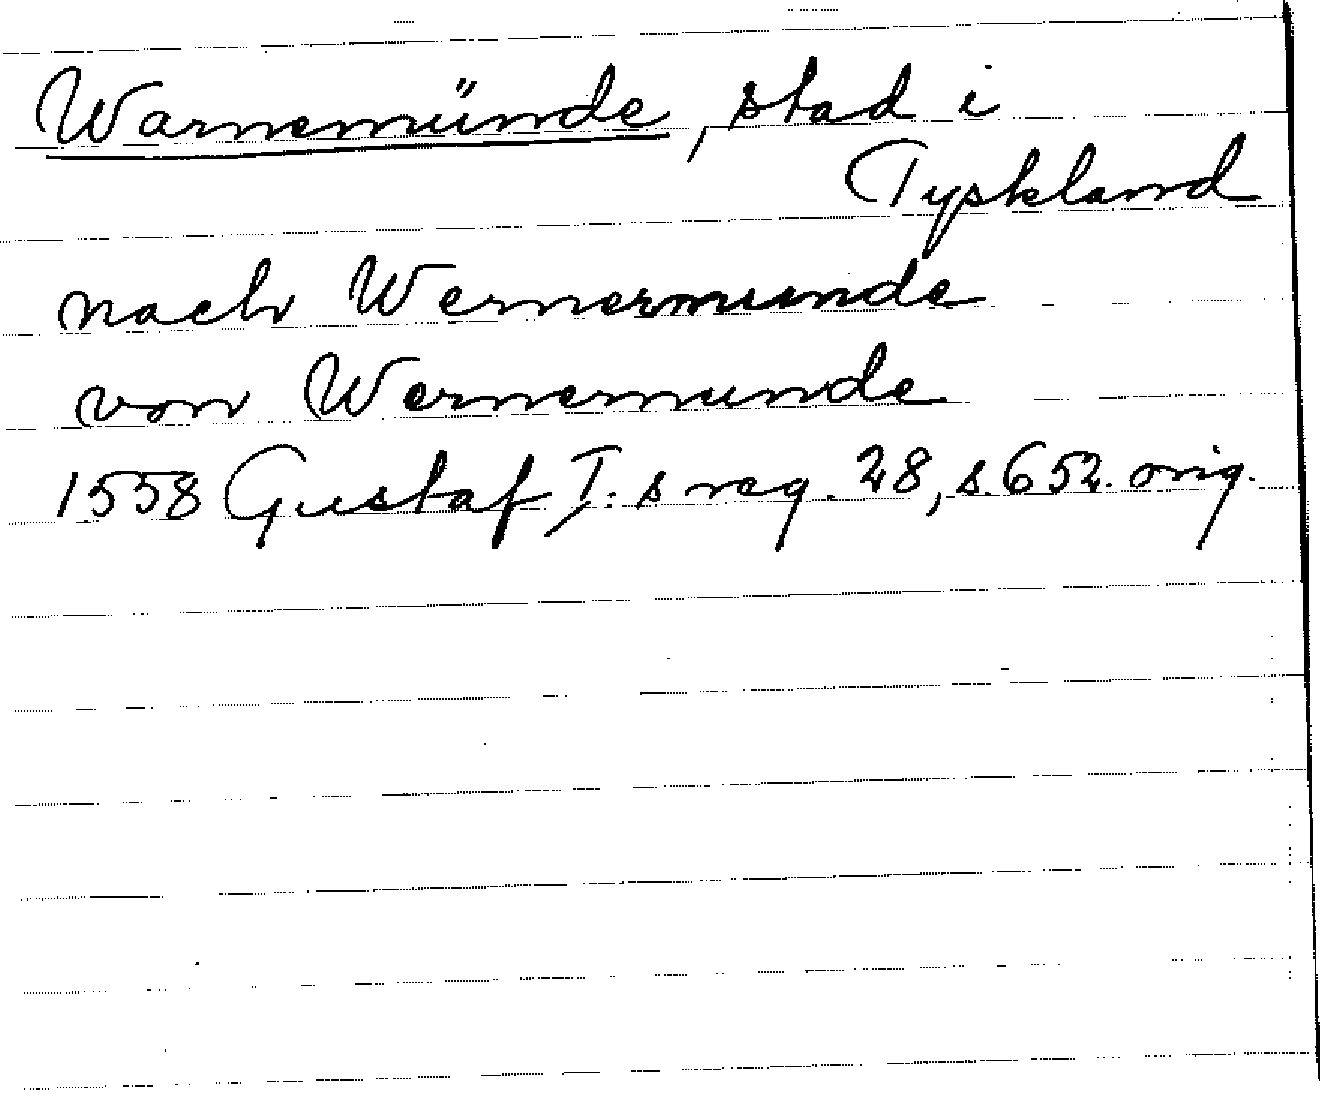 Warnemünde, stad i
Tyskland
nach Wernermunde
von Wernemunde
1558 Gustaf I:s reg. 28, s. 652. orig.